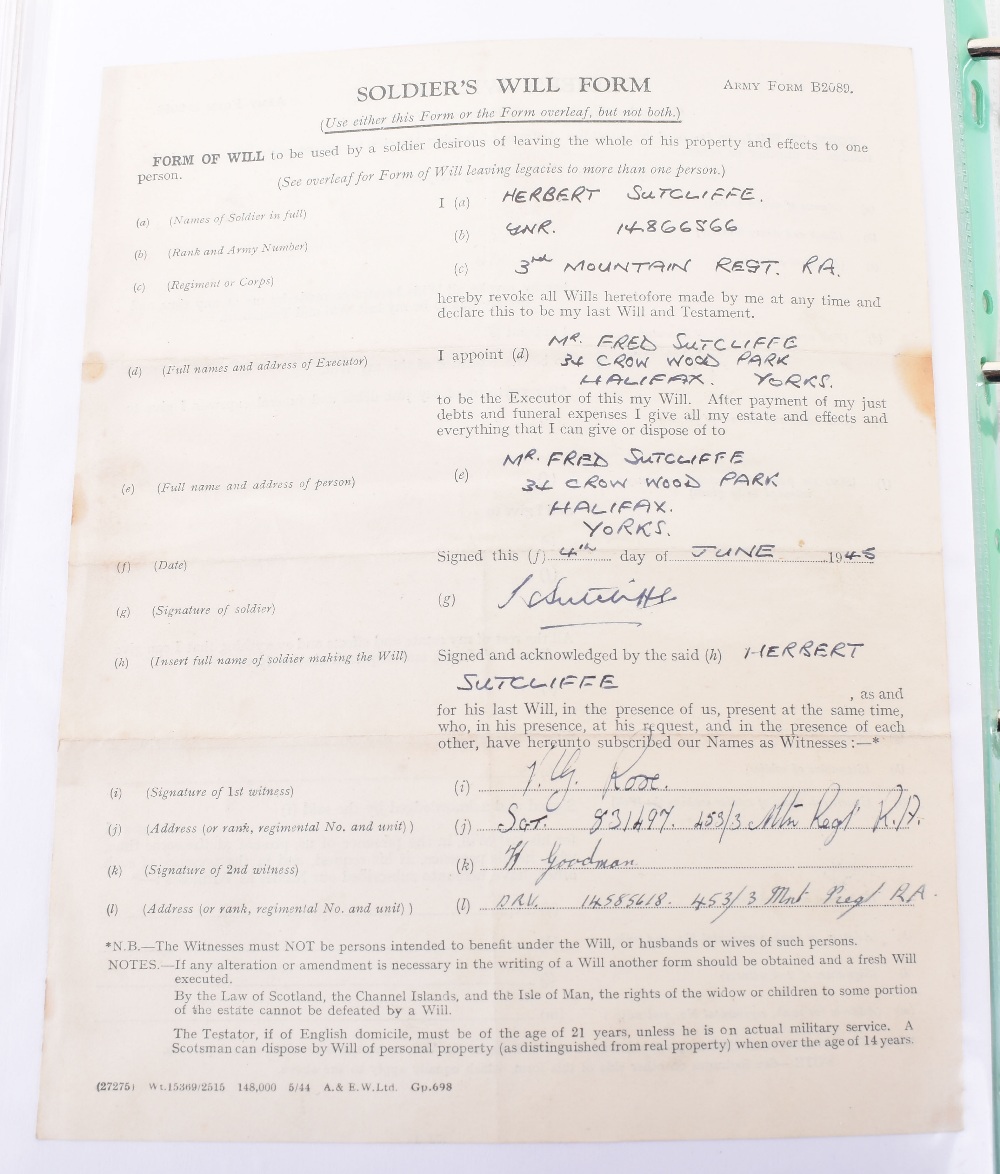 SOLDIER'S WILL FORM
ARMY FORM B2089.
(Use either this Form or the Form overleaf, but not both.)
FORM OF WILL to be used by a soldier desirous of leaving the whole of his property and effects to one
person.
(See overleaf for Form of Will leaving legacies to more than one person.)
(a) (Names of Soldier in full) I (a) HERBERT SUTCLIFFE.
(b) (Rank and Army Number) (b) GNR. 14866566
(c) (Regiment or Corps) (c) 3rd MOUNTAIN REGT. RA.
hereby revoke all Wills heretofore made by me at any time and
declare this to be my last Will and Testament.
(d) (Full names and address of Executor) I appoint (d) MR. FRED SUTCLIFFE
34 CROW WOOD PARK
HALIFAX. YORKS.
to be the Executor of this my Will. After payment of my just
debts and funeral expenses I give all my estate and effects and
everything that I can give or dispose of to
(e) (Full name and address of person) (e) MR. FRED SUTCLIFFE
34 CROW WOOD PARK
HALIFAX.
YORKS.
(f) (Date) Signed this (f) 4th day of JUNE 1945
(g) (Signature of soldier) (g) H Sutcliffe
(h) (Insert full name of soldier making the Will) Signed and acknowledged by the said (h) HERBERT
SUTCLIFFE , as and
for his last Will, in the presence of us, present at the same time,
who, in his presence, at his request, and in the presence of each
other, have hereunto subscribed our Names as Witnesses :—*
(i) (Signature of 1st witness) (i) Rose.
(j) (Address (or rank, regimental No. and unit)) (j) SGT. 831497. 453/3 Mtn Regt R.A.
(k) (Signature of 2nd witness) (k) H Goodman
(l) (Address (or rank, regimental No. and unit)) (l) DRV. 14585618. 453/3 Mnt Regt RA.
*N.B.—The Witnesses must NOT be persons intended to benefit under the Will, or husbands or wives of such persons.
NOTES.—If any alteration or amendment is necessary in the writing of a Will another form should be obtained and a fresh Will
executed.
By the Law of Scotland, the Channel Islands, and the Isle of Man, the rights of the widow or children to some portion
of the estate cannot be defeated by a Will.
The Testator, if of English domicile, must be of the age of 21 years, unless he is on actual military service. A
Scotsman can dispose by Will of personal property (as distinguished from real property) when over the age of 14 years.
(27275) Wt.15369/2515 148,000 5/44 A.& E.W.Ltd. Gp.698